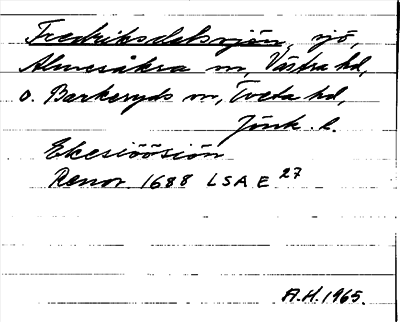 Fredriksdalssjön, sjö,
Almesåkra sn, Västra hd,
o. Barkeryds sn, Tveta hd,
Jönk. l.
Ekesiöösiön
Renov 1688 LSA E 27
A.H. 1965.